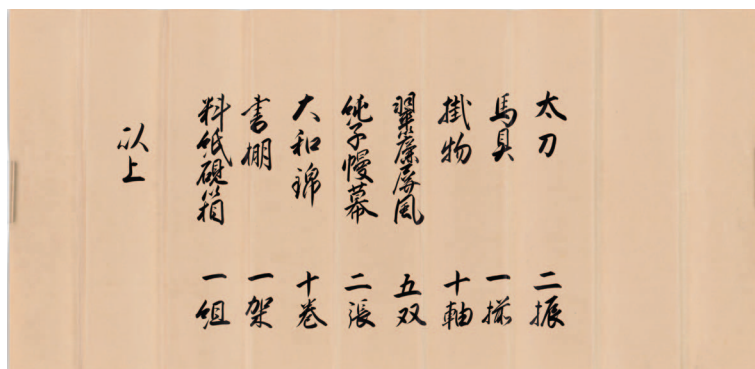 太刀 二振
馬具 一揃
掛物 十軸
翠簾屏風 五双
純子幔幕 二張
大和錦 十巻
書棚 一架
料紙硯箱 一組
以上